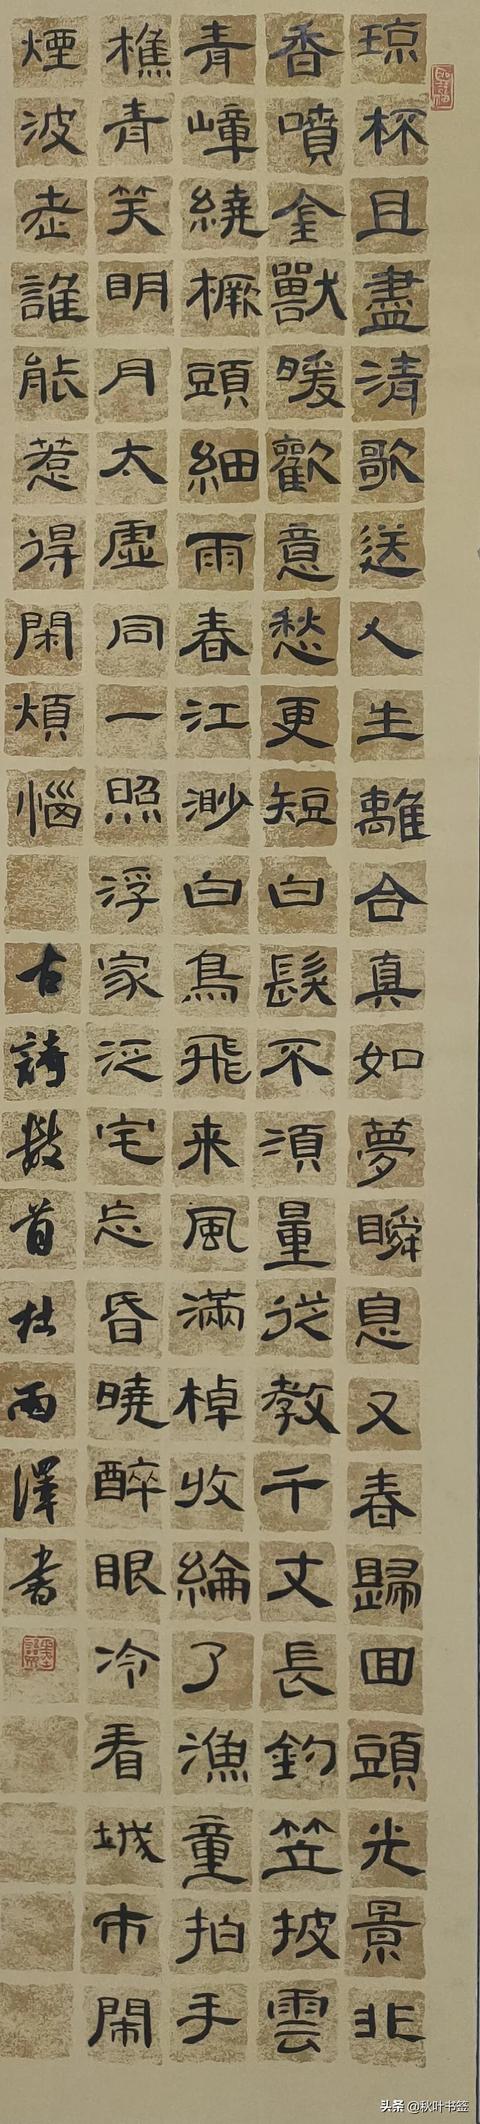 琼杯且盡清歌送人生離合真如夢瞬息又春歸回頭光景非
香噴金獸暖歡意愁更短白髮不須量從教千丈長釣笠披雲
青嶂繞橛頭細雨春江渺白鳥飛来風滿棹收綸了漁童拍手
樵青笑明月太虛同一照浮家泛宅忘昏曉醉眼冷看城市鬧
煙波老誰能惹得閑煩惱
古詩數首杜雨澤書
头条 @秋叶书签